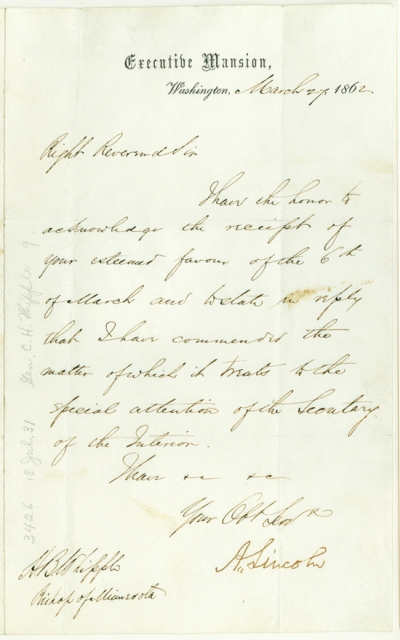 Executive Mansion,
Washington, March 27, 1862.
Right Reverend Sir
I have the honor to
acknowledge the receipt of
your esteemed favour of the 6th
of March and to state in reply
that I have commended the
matter of which it treats to the
special attention of the Secretary
of the Interior.
I have &c &c
Your Obt Servt
A. Lincoln
H. B. Whipple
Bishop of Minnesota
3426 18 Jul. 31 Gen. C. H. Whipple